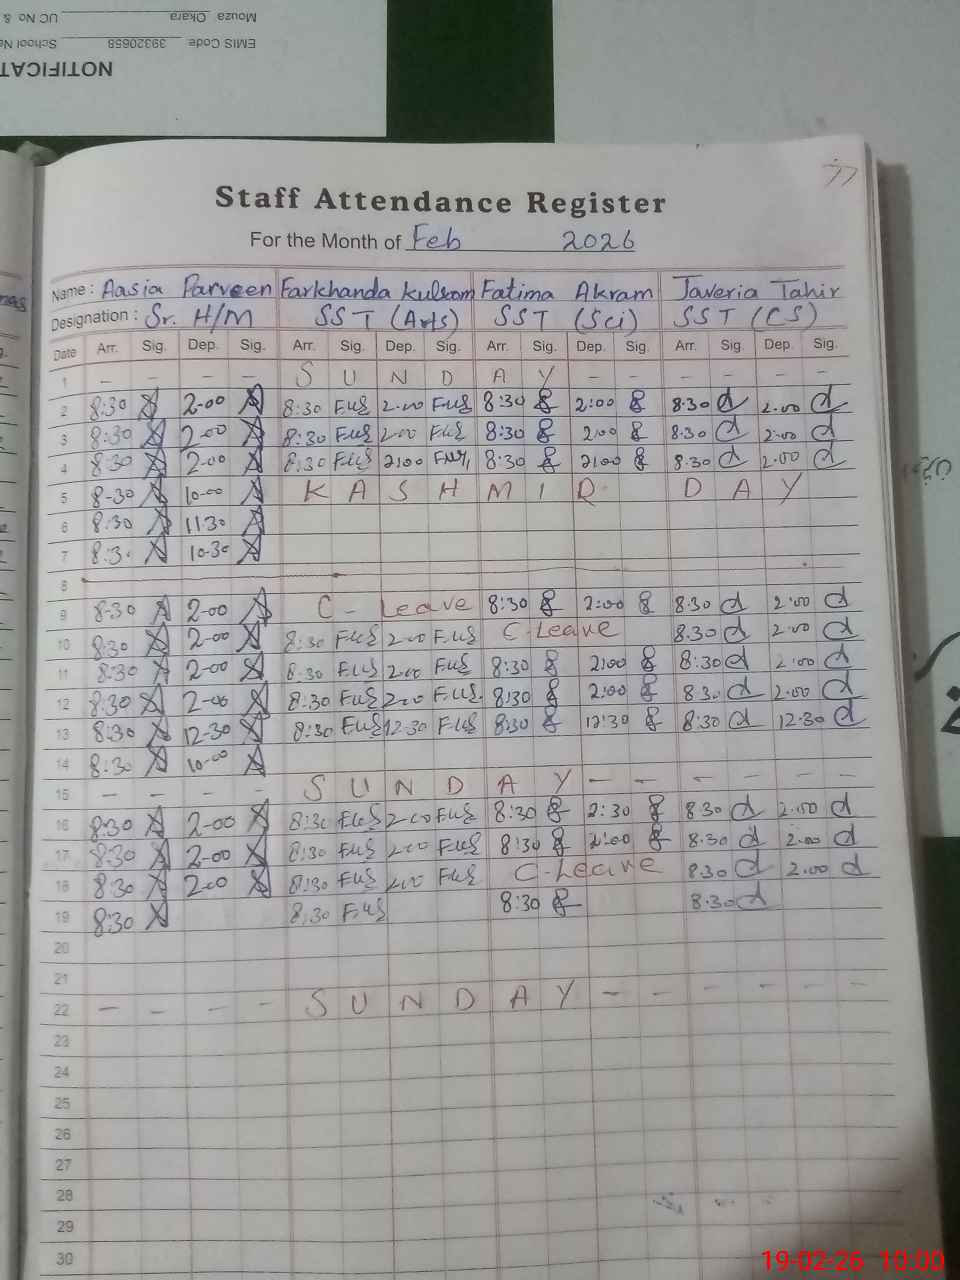 Mouza, Okara UC No &
EMIS Code: 39320658 School Na
NOTIFICAT
77
Staff Attendance Register
For the Month of Feb 2026
Name: Aasia Parveen Farkhanda Kulsom Fatima Akram Javeria Tahir
Designation: Sr. H/M SST (Arts) SST (Sci) SST (CS)
Date Arr. Sig. Dep. Sig. Arr. Sig. Dep. Sig. Arr. Sig. Dep. Sig. Arr. Sig. Dep. Sig.
1 - - - - S U N D A Y - - - - - -
2 8:30 2-00 8:30 2-00 8:30 2:00 8.30 2.00
3 8:30 2-00 8:30 2-00 8:30 2:00 8.30 2-00
4 8:30 2-00 8:30 2:00 8:30 2:00 8.30 2.00
5 8-30 10-00 K A S H M I R D A Y
6 8:30 11.30
7 8:3. 10-30
8
9 8-30 2-00 C - Leave 8:30 2:00 8.30 2.00
10 8:30 2-00 8:30 2-00 C-Leave 8.30 2.00
11 8:30 2-00 8.30 2.00 8:30 2:00 8:30 2.00
12 8:30 2-00 8:30 2-00 8:30 2:00 8.30 2.00
13 8:30 12-30 8:30 12.30 8:30 12:30 8:30 12.30
14 8:30 10-00
15 - - - - S U N D A Y - - - - - -
16 8:30 2-00 8:30 2-00 8:30 2:30 8.30 2.00
17 8:30 2-00 8:30 2-00 8:30 2:00 8.30 2.00
18 8:30 2-00 8:30 2.00 C-Leave 8.30 2.00
19 8:30 8.30 8:30 8.30
20
21
22 - - - - S U N D A Y - - - - - -
23
24
25
26
27
28
29
30
19-02-26 10:00